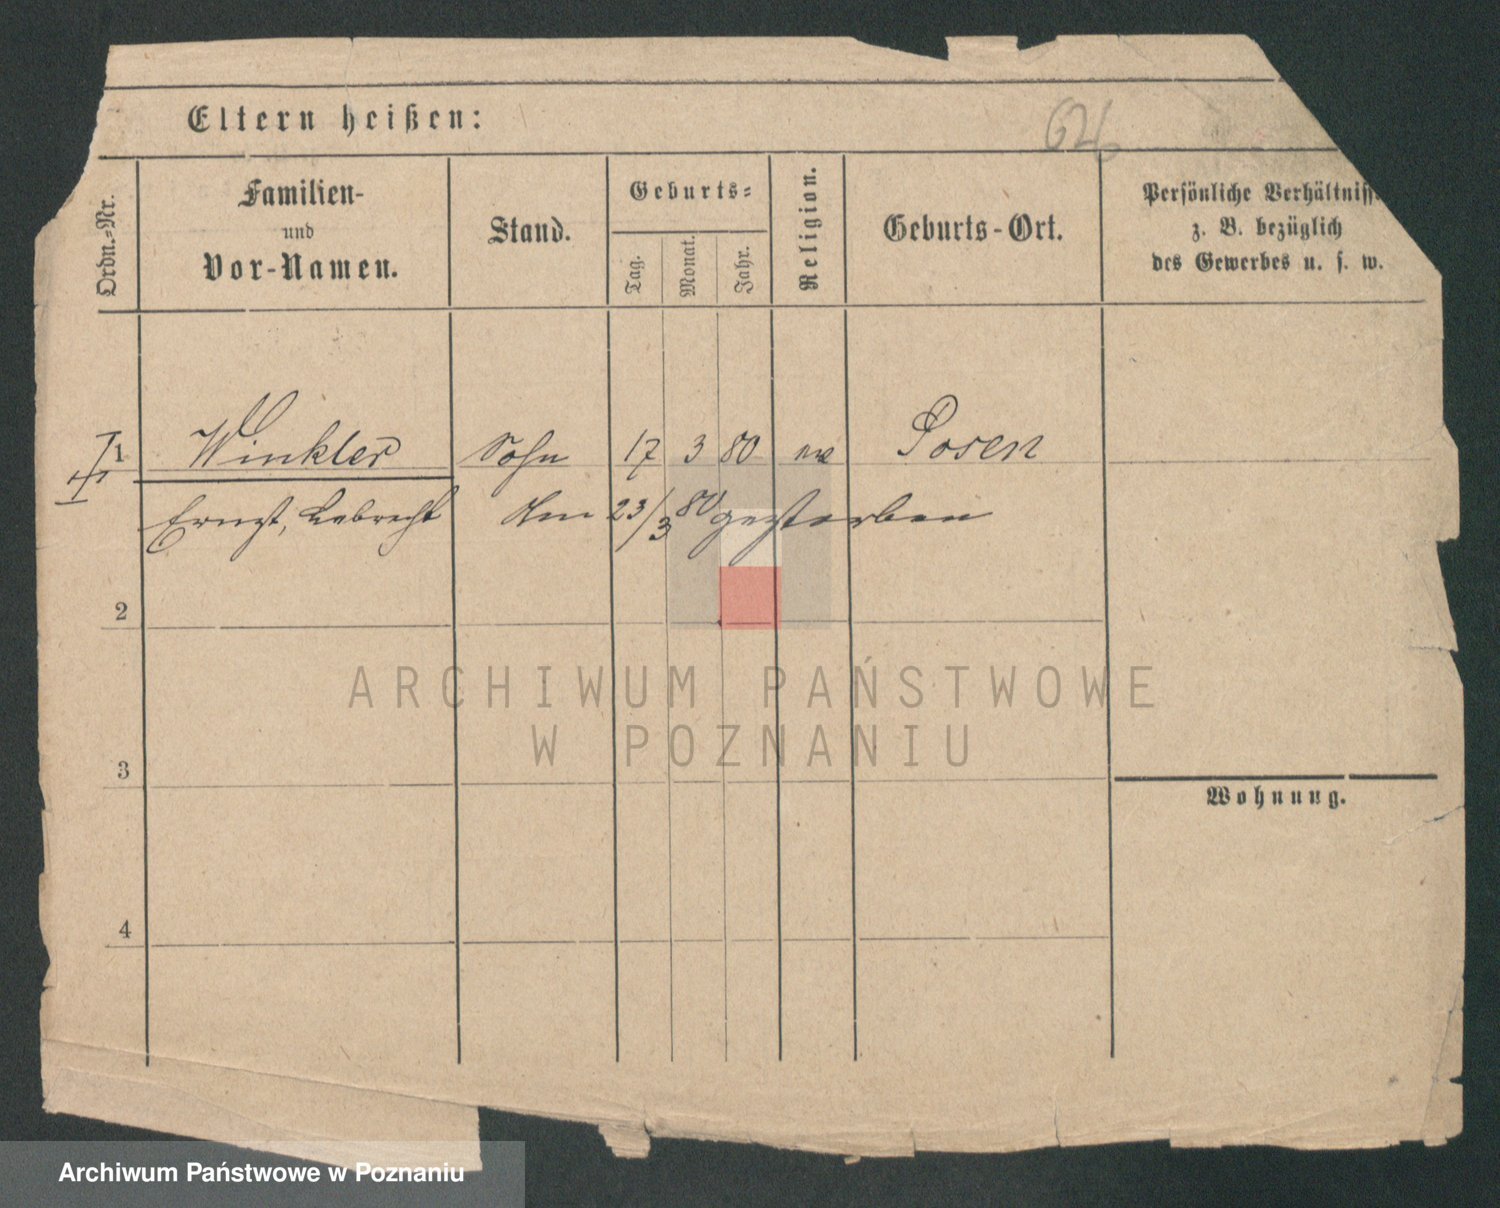 Eltern heißen:
626
Ordn.-Nr.
Familien-
und
Vor-Namen.
Stand.
Geburts-
Tag.
Monat.
Jahr.
Religion.
Geburts-Ort.
Persönliche Verhältniss
z. B. bezüglich
des Gewerbes u. s. w.
1 Winkler Sohn 17 3 80 ev Posen
Ernst, Lebrecht Am 23/3 80 gestorben
2
ARCHIWUM PAŃSTWOWE
W POZNANIU
3
Wohnung.
4
Archiwum Państwowe w Poznaniu